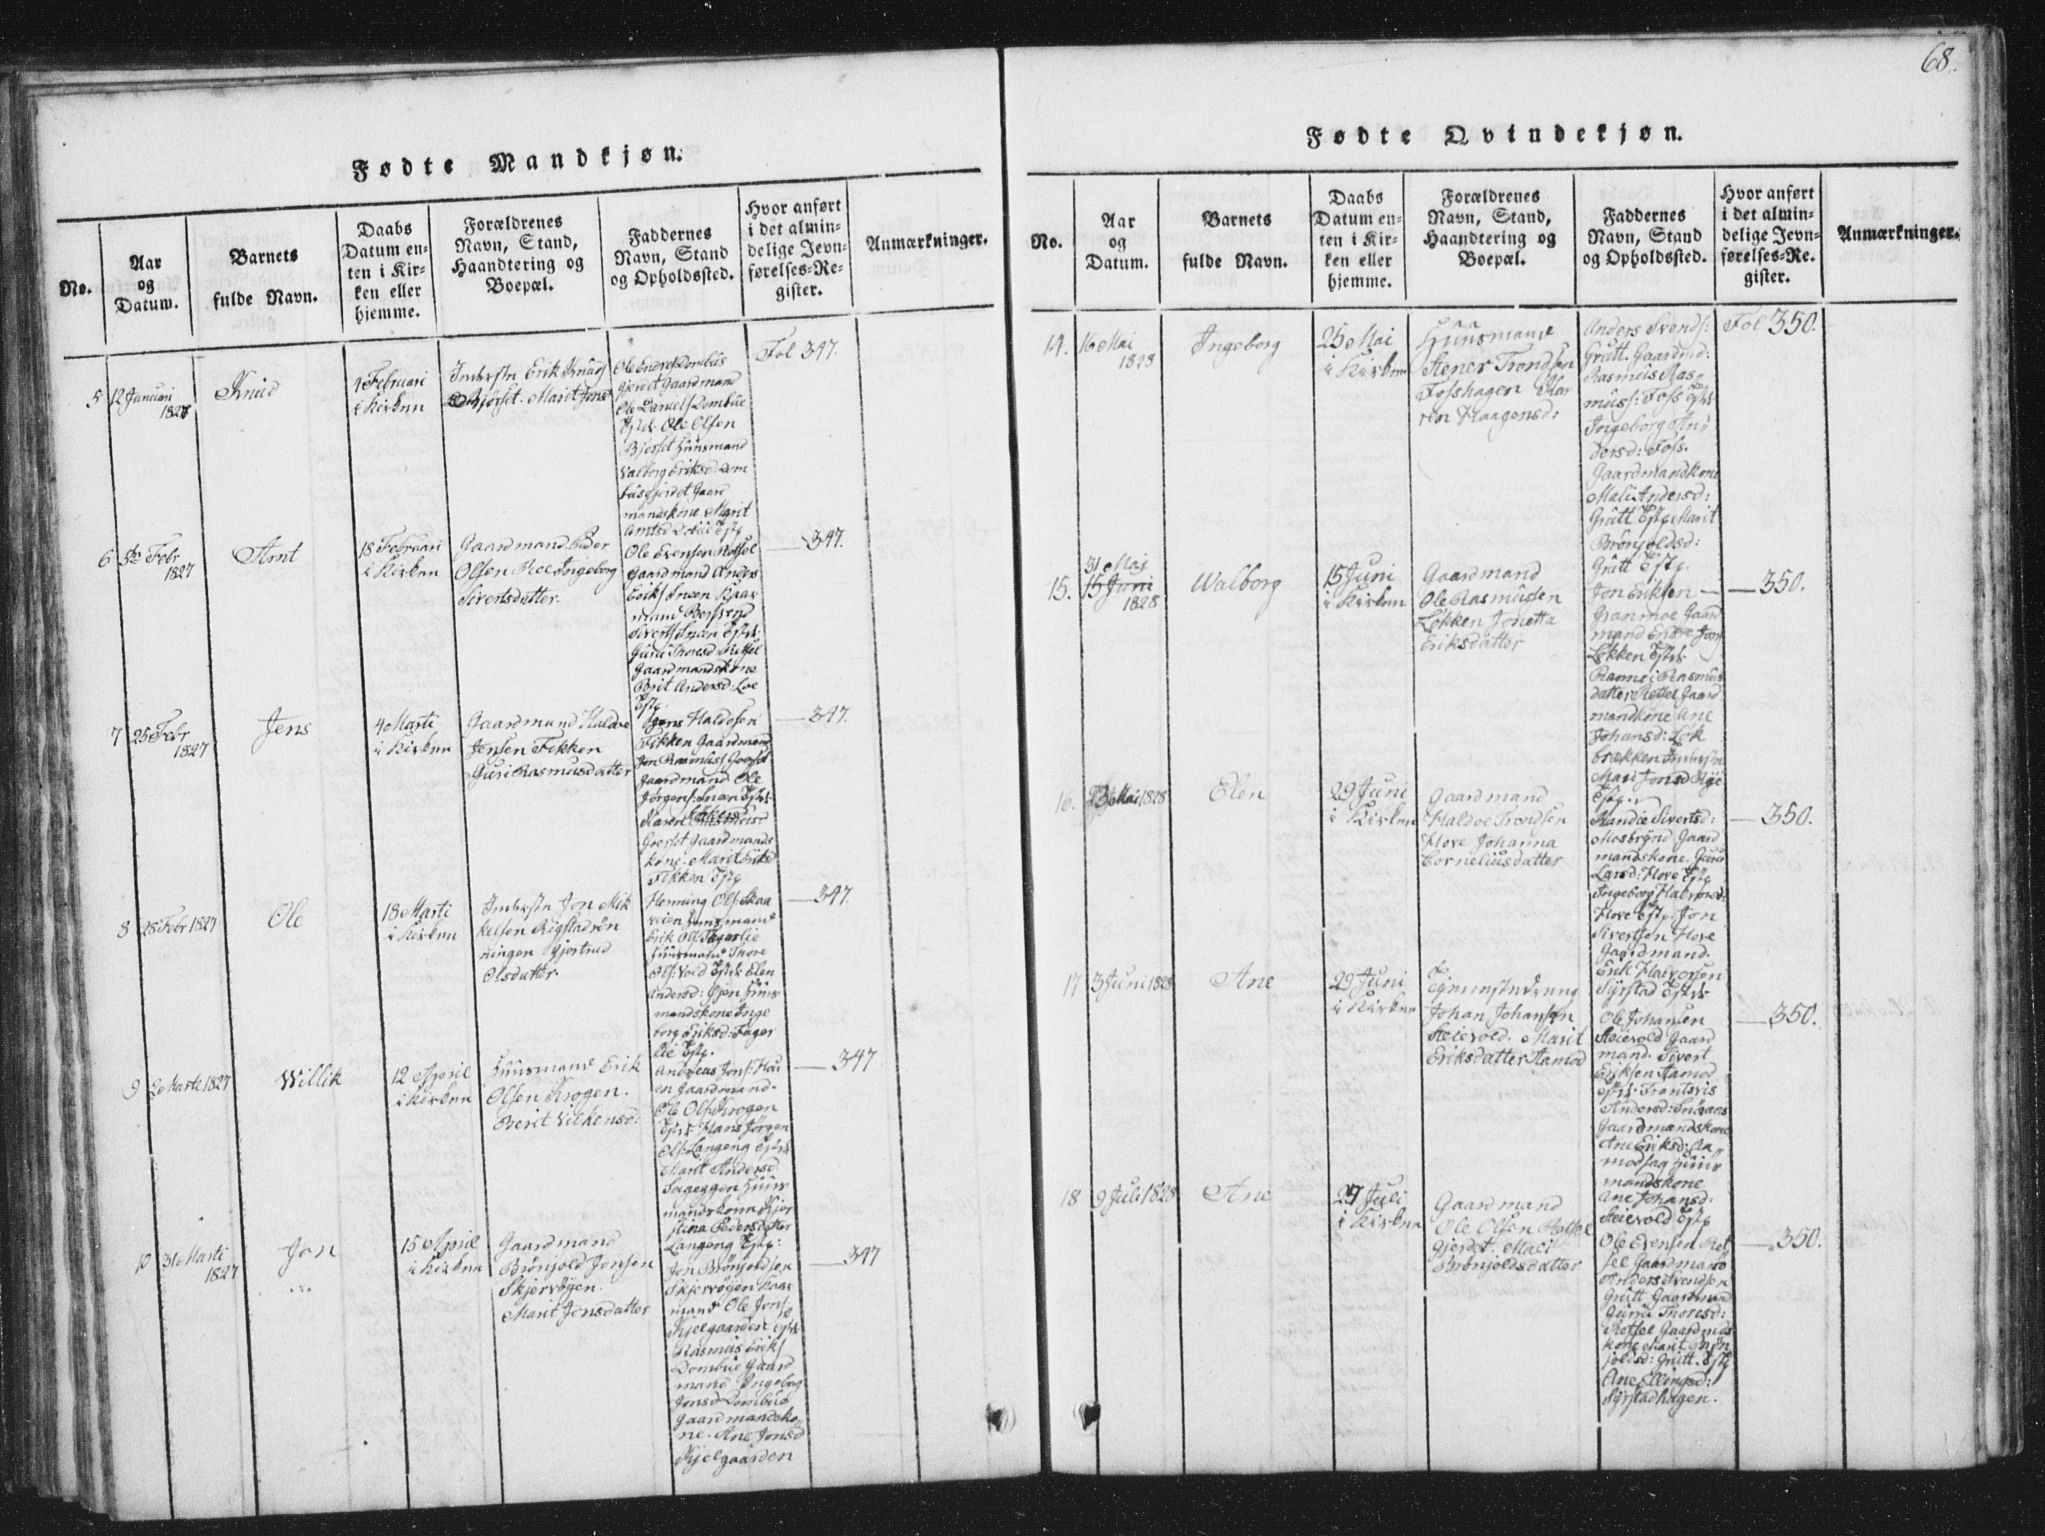 68.
Fødte Mandkjøn.
No.
Aar
og
Datum.
Barnets
fulde Navn.
Daabs
Datum en-
ten i Kir-
ken eller
hjemme.
Forældrenes
Navn, Stand,
Haandtering og
Boepæl.
Faddernes
Navn, Stand
og Opholdssted.
Hvor anført
i det almin-
delige Jevn-
førelses-Re-
gister.
Anmærkninger.
5
12 Januari
1827
Knud
4 Februari
i Kirken
Inderste Erik Knuds
Bjørset. Marit Jons
Ole Endres Dombus
gjerdet Gaardmand
Ole Daniels Dombue
Ole Olsen
Bjørset Huusmand
Valborg Eriksd: Dom
busgjerdet Gaard
mandskone Marit
Fol 347.
6
5te Febr
1827
Arnt
18 Februari
i Kirken
Gaardmand Peder
Olsen Roe Ingeborg
Sivertsdatter.
Ole Evensen Retsel
Gaardmand Anders
Guru Thoresd Retsel
Gaardmandskone
Brit Andersd: Loe
347.
7
25 Febr
1827
Jens
4 Marti
i Kirken
Gaardmand Haldoe
Jensen Fikken
Guri Rasmusdatter
Jens Haldosen
Fikken Gaardmand
Jon Rasmus Goeset
Gaardmand Ole
Jørgens: Snøen
Goeset Gaardmands
kone. Marit Eriksd
Fikken
347.
8
28 Febr 1827
Ole
18 Marti
i Kirken
Inderste Jon Mik
kelsen Rigstadrøn
ningen Gjertrud
Olsdatter.
Henning Ols: Skaa
veien Huusmand
Erik Ols: Fagerlie
Huusmand Thore
Ols: Vold Elen
Andersd: Huus
mandskone Inge
borg Eriksd: Fager
lie
347.
9
2 Marti 1827
Willik
12 April
i Kirken
Huusmand Erik
Olsen Krogen.
Berit Vilkensd:
Andreas Jons: Hau
en Gaardmand.
Ole Ols: Krogen
Hans Jørgen
Ols: Langeng
Marit Andersd.
Huus
mandskone Kjer
stina Pedersdatter
Langeng
347
10
31 Marti
1827
Jon
15 April
i Kirken
Gaardmand
Brønjold Jonsen
Skjervøgen.
Marit Jonsdatter
Jon Brønjoldsen
Skjervøgen Gaar
mand Ole Jons
Kjelgaarden
Rasmus Eriks
Dombue Gaard
mand Ingeborg
Jonsd Dombue
Gaardmandsko
ne. Ane Jonsd
Kjelgaarden
347
Fødte Qvindekjøn.
No.
Aar
og
Datum.
Barnets
fulde Navn.
Daabs
Datum en-
ten i Kir-
ken eller
hjemme.
Forældrenes
Navn, Stand,
Haandtering og
Boepæl.
Faddernes
Navn, Stand
og Opholdssted.
Hvor anført
i det almin-
delige Jevn-
førelses-Re-
gister.
Anmærkninger.
14.
16 Mai
1828
Ingeborg
25 Mai
i Kirken
Huusmand
Stener Trondsen
Fosshagen Kar
ren Haagensd:
Anders Svends:
Grütt. Gaardmd:
Rasmus Ras
mus: Foss
Ingeborg An
dersd: Foss.
Gaardmandskone
Mali Andersd:
Grütt Marit
Brønjoldsd:
Grütt
Fol 350.
15.
31 Mai
15 Juni
1828
Walborg
15 Juni
i Kirken
Gaardmand
Ole Rasmusen
Løkken Jonetta
Eriksdatter
Jon Eriksen
Granmoe Gaard
mand Endre Jons
Løkken
Ranne: Rasmus
datter Retsel Gaard
mandkone Ane
Johansd: Løk
brækken Inderste
Mari Jonsd
350.
16.
23 Mai 1828
Elen
29 Juni
i Kirken
Gaardmand
Haldoe Trondsen
Hove Johanna
Corneliusdatter
Randie Sivertsd:
Mosbrynd Gaard
mandskone. Guru
Larsd: Hove
Ingeborg Halvorsd:
Hove Jon
Sivertsen Hove
Gaardmand.
350.
17
3 Juni 1828
Ane
29 Juni
i Kirken
Johan Johansen
Steievold. Marit
Eriksdatter Aamod
Erik Halvorsen
Syrstad
Ole Johansen
Steievold Gaard
mand. Sivert
Eriksen Aamod
Andersd:
Gaardmandskone
Ane Eriksd: Aa
modhag Huus
mandskone
Ane Johansd:
Steievold
350.
18
9 Juli 1828
Ane
27 Juli
i Kirken
Gaardmand
Ole Olsen Retsel
gjerdet. Mali
Brønjoldsdatter
Ole Evensen Ret
sel Gaardmand
Anders Svendsen
Grütt Gaardmand
Guru Thoresd:
Retsel Gaardmds
kone Marit Brøn
joldsd: Grütt.
Ane Ellingsd:
Syrstadhagen.
350.